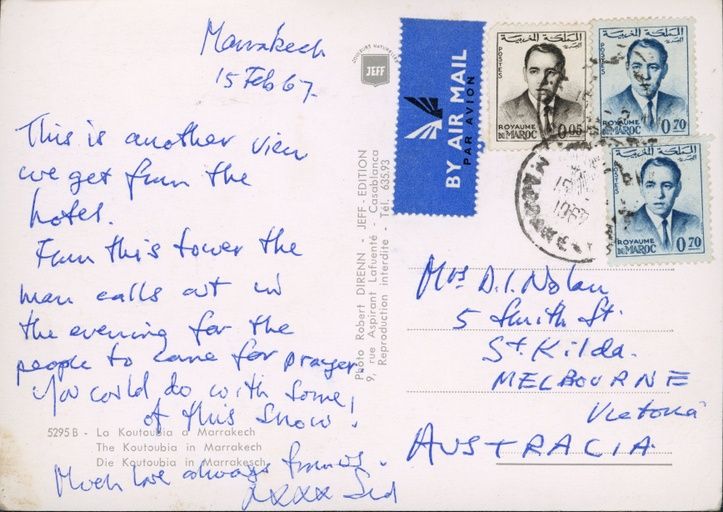 Marrakech
15 Feb 67.
This is another view
we get from the
hotel.
From this tower the
man calls out in
the evening for the
people to come for prayer.
You could do with some
of this snow!
5295 B - La Koutoubia a Marrakech
The Koutoubia in Marrakech
Die Koutoubia in Marrakesch
Much love always
xxxx Sid
COULEURS NATURELLES
JEFF
Photo Robert DIRENN - JEFF-EDITION
9, rue Aspirant Lafuenté - Casablanca
Reproduction interdite - Tél. 635.93
BY AIR MAIL
PAR AVION
المملكة المغربية
POSTES
ROYAUME
DU MAROC 0,05
المملكة المغربية
POSTES
ROYAUME
DU MAROC 0,70
المملكة المغربية
POSTES
ROYAUME
DU MAROC 0,70
1967
Mrs D.I. Nolan
5 Smith St.
St. Kilda.
MELBOURNE
Victoria
AUSTRALIA